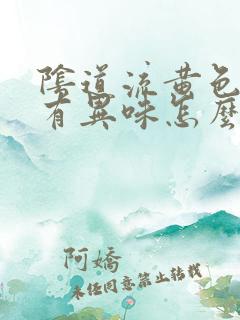 陰道流黃色
有異味怎麼
阿嬌
未經同意禁止轉載